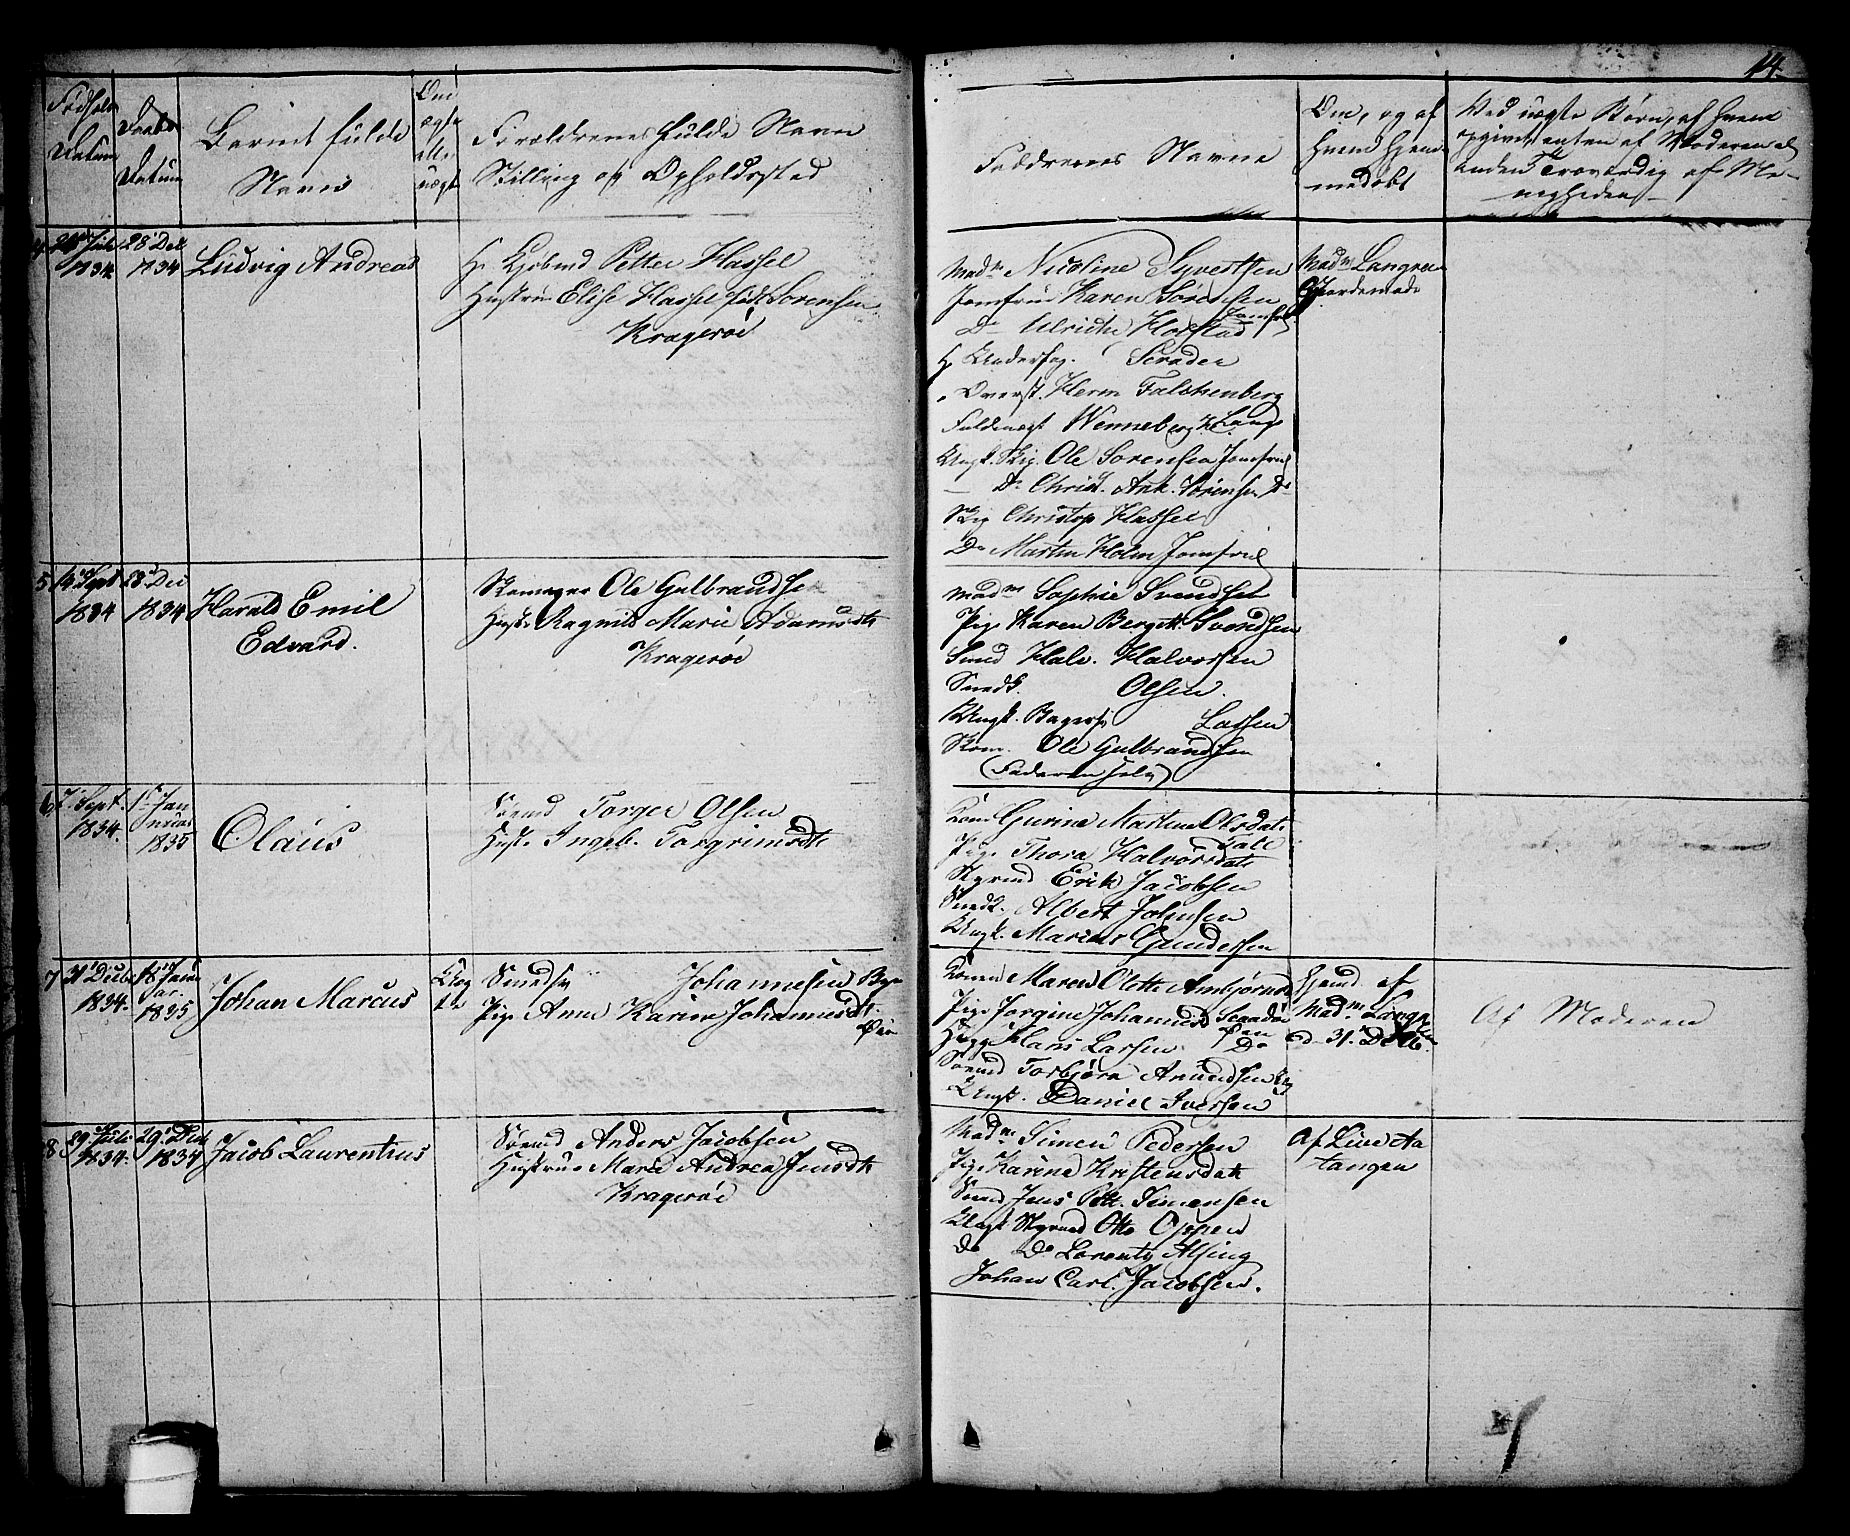 14.
Fødsels Datum
Daabs Datum
Barnets fulde Navn
Om ægte eller uægte
Forældrenes fulde Navne
Stilling og Opholdssted
Faddernes Navne
Om, og af hvem hjemmedøbt
Ved uægte Børn, af hvem
opgivet enten af Moderen el
anden Troværdig af Me-
nigheden
4
Juli 1834.
28 Dec 1834
Ludvig Andreas
Hr Kjøbmd Petter Hassel
Hustrue Elise Hassel født Sørensen
Kragerøe
Madme Nicoline Syvertsen
Jomfrue Karen Sørensen
Do Ulricke Horstad
H. Undersog. Scrader
Overst. Herm Falchenberg
Fuldmægt Wenneberg
Ungk. Skip. Ole Sorensen Jomfrul
Do Christ. Ank. Sørensen Do
Skip Christop Hassel
Do Martin Holm Jomfrul
Madme Langøen
Gjordemode
5
14 Sept 1834
28 Dec 1834
Harald Emil
Edvard.
Skomager Ole Gulbrandsen
Hustr Ragnild Marie Adamsdt
Kragerøe
Madme Sophie Svendsen
Pige Karen Berg M. Svendsen
Smed Halv. Halvorsen
Snedk. Olsen.
Ungk. Bagersv Lassen
Skom. Ole Gulbrandsen
(Faderen selv)
6
7 Sept. 1834.
1 Januar 1835
Olaus
Sømd Torger Olsen
Hustr Ingeb. Torgrimsdt
Kone Gurine Martine Olsdat.
Pige Thora Halvorsdatt
Styrmd Erik Jacobsen
Snedk. Albert Johnsen
Ungk. Marius Gundersen
7
31 Decbr 1834.
18 Januar 1835
Johan Marcus
Uægte
Smedsv Johannesen Bye
Pige Anne Karine Johannesdt.
Øen
Konen Maren Olette Anbjørnsd
Pige Jorgine Johannesd
Hans Larsen Do
Sømd Torbjørn Amundsen
Ungk. Daniel Iversen
Hjemd af
Madme Langøen
d. 31 Decbr.
Af Moderen
8
29 Juli 1834.
29 Decb 1834
Jacob Laurentius
Sømd Anders Jacobsen
Hustrue Marie Andrea Jensdt
Kragerøe
Madme Simen Pedersen
Pige Karine Kristensdatt
Sømd Jens Pett. Simensen
Ungk Styrmd Otto Oppen
do Do Lorentz Alsing
Johan Carl. Jacobsen.
Af Line Aa
tangen